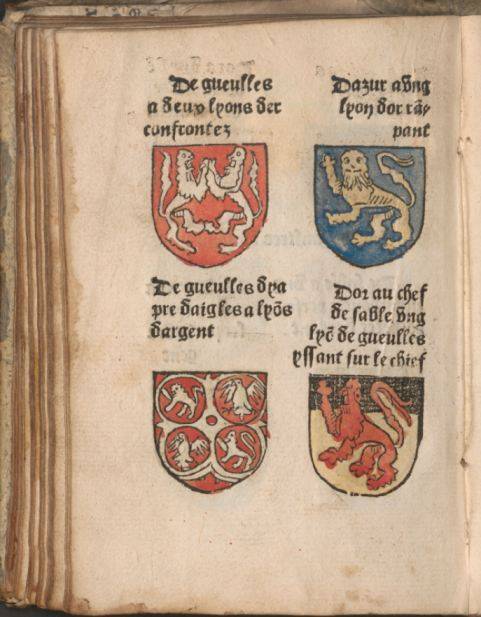 De gueulles
a deux lyons der
confrontez
Dazur a vng
lyon dor rã/
pant
De gueulles dya
pre daigles a lyõs
dargent
Dor au chef
de sable vng
lyõ de gueulles
yssant sur le chief